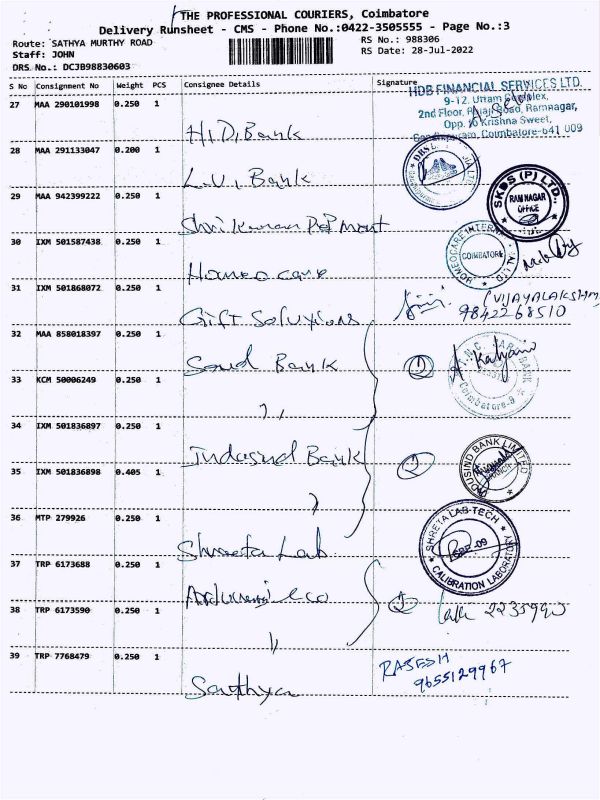 THE PROFESSIONAL COURIERS, Coimbatore
Delivery Runsheet - CMS - Phone No.:0422-3505555 - Page No.:3
Route: SATHYA MURTHY ROAD
RS No.: 988306
Staff: JOHN
RS Date: 28-Jul-2022
DRS No.: DCJB98830603
S No Consignment No Weight PCS Consignee Details Signature
HDB FINANCIAL SERVICES LTD.
9-12,
2nd Floor, Road, Ramnagar,
Opp. Krishna Sweet,
Coimbatore-641 009
27 MAA 290101998 0.250 1
Bank
28 MAA 291133047 0.200 1
L.V. Bank
29 MAA 942399222 0.250 1
SKDS (P) LTD.
RAM NAGAR
OFFICE
30 IXM 501587438 0.250 1
Homeo care
HOMEOCARE
COIMBATORE
31 IXM 501868072 0.250 1
Gift Solutions
(VIJAYALAKSHMI
9842268510
32 MAA 858018397 0.250 1
Bank
33 KCM 50006249 0.250 1
"
BANK
Coimbatore-9
34 IXM 501836897 0.250 1
Indusind Bank
INDUSIND BANK LIMITED
35 IXM 501836898 0.405 1
"
36 MTP 279926 0.250 1
Shreeta Lab
SHRETA LAB-TECH
CALIBRATION LABORATORY
37 TRP 6173688 0.250 1
38 TRP 6173590 0.250 1
"
2235990
39 TRP 7768479 0.250 1
Sathya
RAJESH
9655129967